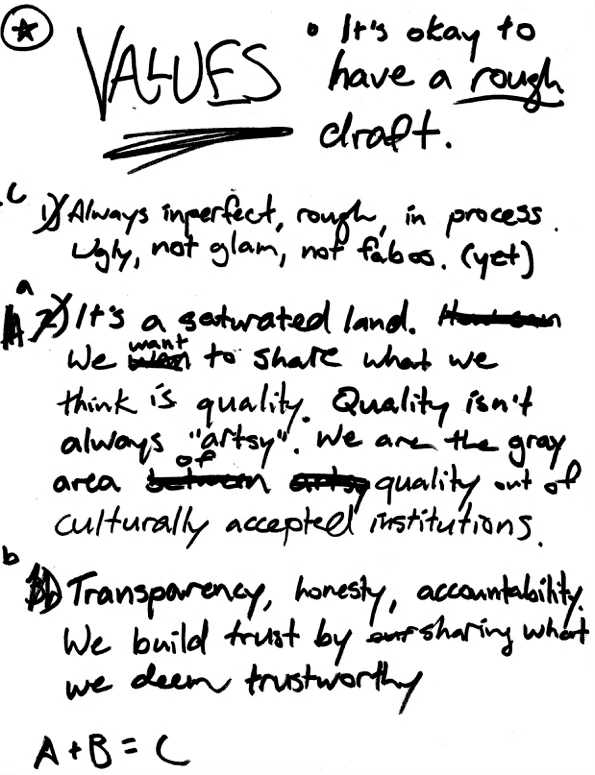 VALUES
• It's okay to
have a rough
draft.
C 1) Always imperfect, rough, in process.
Ugly, not glam, not fabos. (yet)
a
A 2) It's a saturated land.
want
We to share what we
think is quality. Quality isn't
always "artsy". We are the gray
of
area between artsy quality out of
culturally accepted institutions.
b
B) Transparency, honesty, accountability.
We build trust by our sharing what
we deem trustworthy
A + B = C